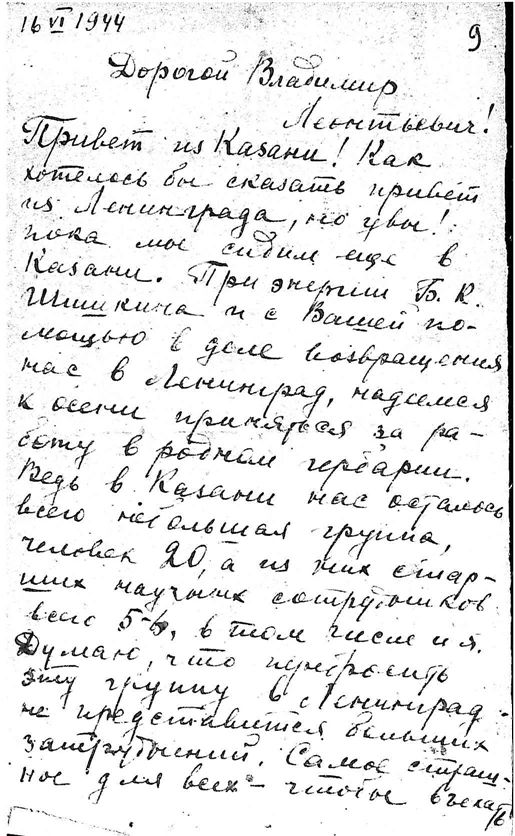 16 VI 1944
9
Дорогой Владимир
Леонтьевич!
Привет из Казани! Как
хотелось бы сказать привет
из Ленинграда, но увы!
пока мы сидим еще в
Казани. При энергии Б. К.
Шишкина и с Вашей по-
мощью в деле возвращения
нас в Ленинград, надеемся
к осени приняться за ра-
боту в родном гербарии.
Ведь в Казани нас осталось
всего небольшая группа,
человек 20, а из них стар-
ших научных сотрудников
всего 5-6, в том числе и я.
Думаю, что перебросить
эту группу в Ленинград
не представится больших
затруднений. Самое страш-
ное для всех - чтобы въехать